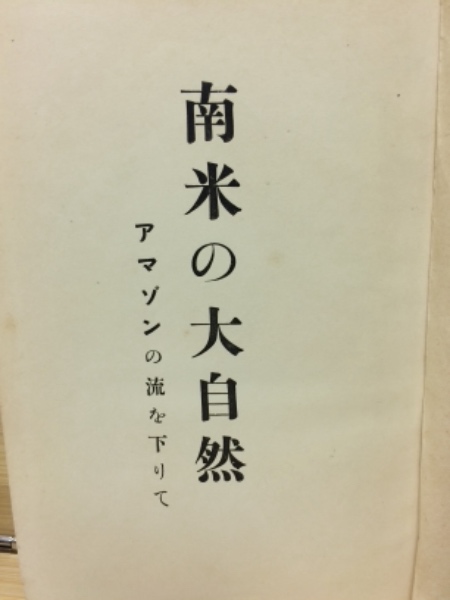 南米の大自然
アマゾンの流を下りて